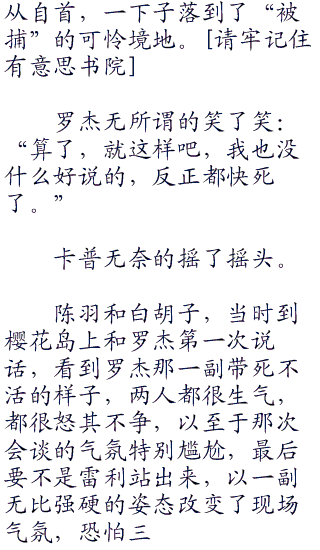 从自首，一下子落到了“被
捕”的可怜境地。[请牢记住
有意思书院]
罗杰无所谓的笑了笑：
“算了，就这样吧，我也没
什么好说的，反正都快死
了。”
卡普无奈的摇了摇头。
陈羽和白胡子，当时到
樱花岛上和罗杰第一次说
话，看到罗杰那一副带死不
活的样子，两人都很生气，
都很怒其不争，以至于那次
会谈的气氛特别尴尬，最后
要不是雷利站出来，以一副
无比强硬的姿态改变了现场
气氛，恐怕三